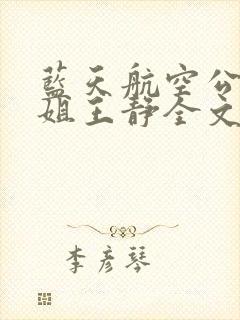 藍天航空公
姐王靜全文
李彥琴